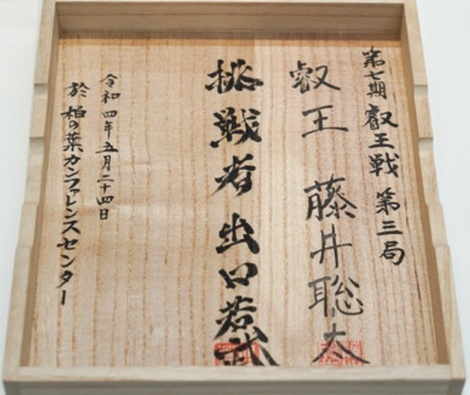 第七期叡王戦 第三局
叡王 藤井聡太
挑戦者 出口若武
令和四年五月二十四日
於 柏の葉カンファレンスセンター